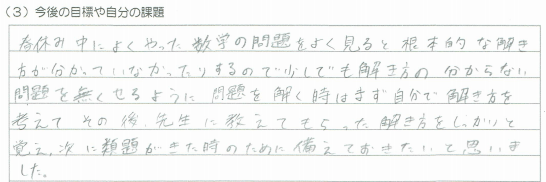 (3) 今後の目標や自分の課題
春休み中によくやった数学の問題をよく見ると根本的な解き
方が分かっていなかったりするので少しでも解き方の分からない
問題を無くせるように問題を解く時はまず自分で解き方を
考えてその後、先生に教えてもらった解き方をしっかりと
覚え、次に類題がきた時のために備えておきたいと思いま
した。